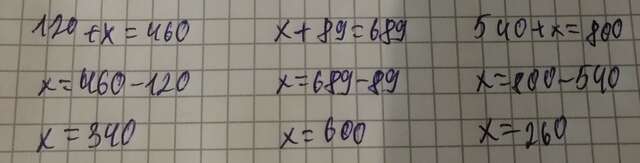 120+x=460 x+89=689 540+x=800
x=460-120 x=689-89 x=800-540
x=340 x=600 x=260